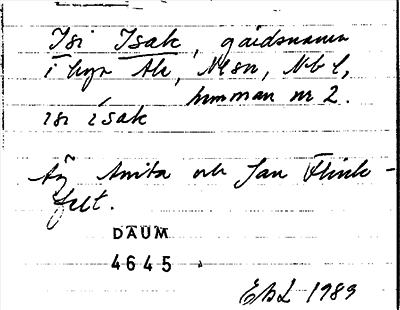 Isi Isak, gårdsnamn
i byn Ale, Nlsn, Nbl,
hemman nr 2.
isi isak
Äg Anita och Jan Flink-
felt.
DAUM
4645
EbL 1989